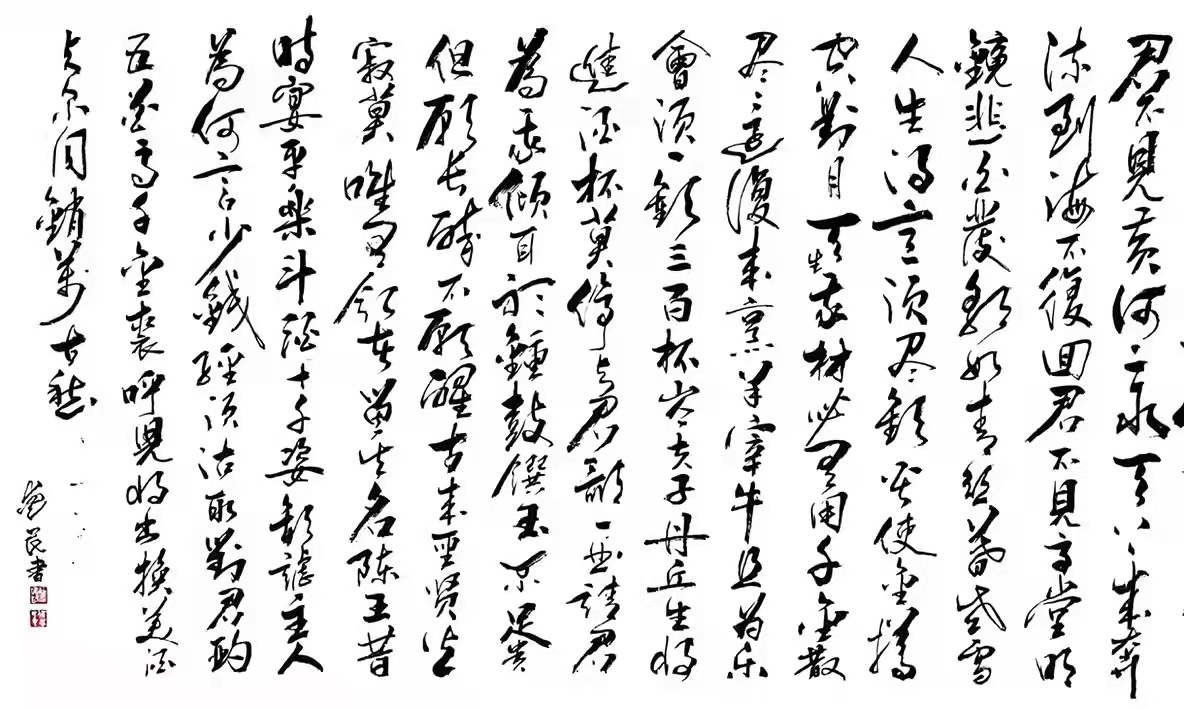 君不見黃河之水天上来奔
流到海不復回君不見高堂明
鏡悲白髮朝如青絲暮成雪
人生得意須尽歡莫使金樽
空對月天生我材必有用千金散
尽还復来烹羊宰牛且为乐
會須一飲三百杯岑夫子丹丘生将
進酒杯莫停与君歌一曲請君
為我傾耳聽鐘鼓饌玉不足貴
但願長醉不願醒古来聖贤皆
寂寞唯有飲者留其名陳王昔
時宴平樂斗酒十千恣歡謔主人
為何言少錢徑須沽取對君酌
五花馬千金裘呼兒将出換美酒
与尔同銷萬古愁
書